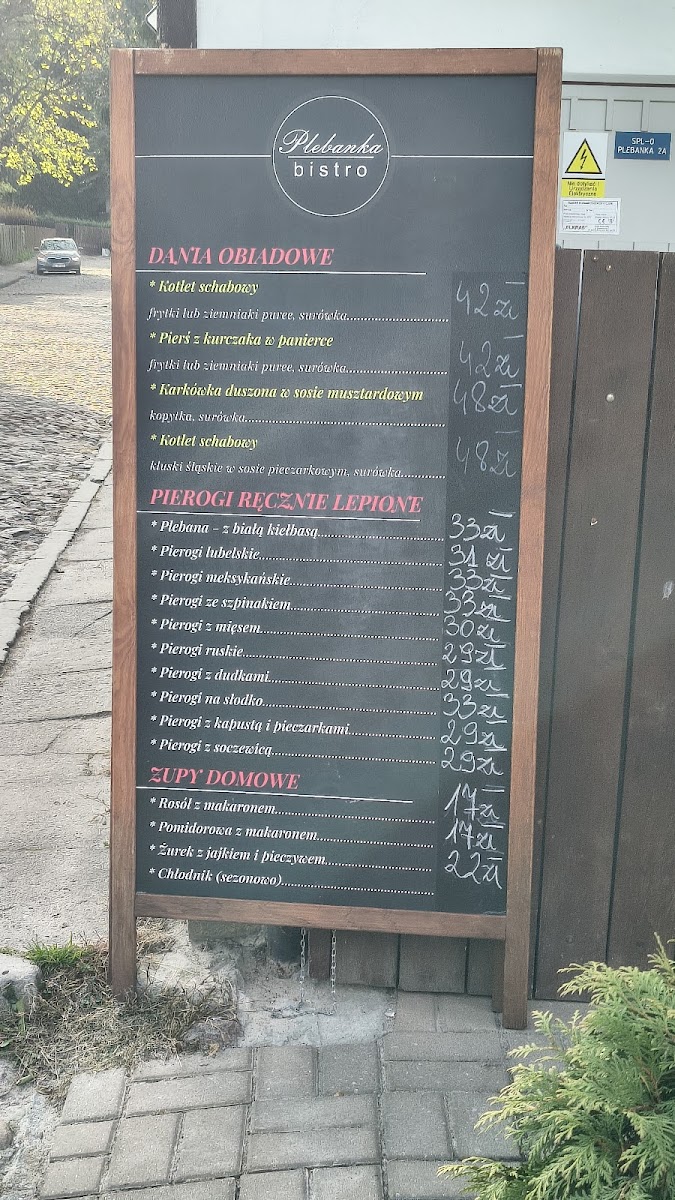 Plebanka
bistro
SPL-0
PLEBANKA 2A
Nie dotykać!
Urządzenie
Elektryczne
DANIA OBIADOWE
* Kotlet schabowy
frytki lub ziemniaki puree, surówka 42 zł
* Pierś z kurczaka w panierce
frytki lub ziemniaki puree, surówka 42 zł
* Karkówka duszona w sosie musztardowym
kopytka, surówka 48 zł
* Kotlet schabowy
kluski śląskie w sosie pieczarkowym, surówka 48 zł
PIEROGI RĘCZNIE LEPIONE
* Plebana - z białą kiełbasą 33 zł
* Pierogi lubelskie 31 zł
* Pierogi meksykańskie 33 zł
* Pierogi ze szpinakiem 33 zł
* Pierogi z mięsem 30 zł
* Pierogi ruskie 29 zł
* Pierogi z dudkami 29 zł
* Pierogi na słodko 33 zł
* Pierogi z kapustą i pieczarkami 29 zł
* Pierogi z soczewicą 29 zł
ZUPY DOMOWE
* Rosół z makaronem 17 zł
* Pomidorowa z makaronem 17 zł
* Żurek z jajkiem i pieczywem 22 zł
* Chłodnik (sezonowo)